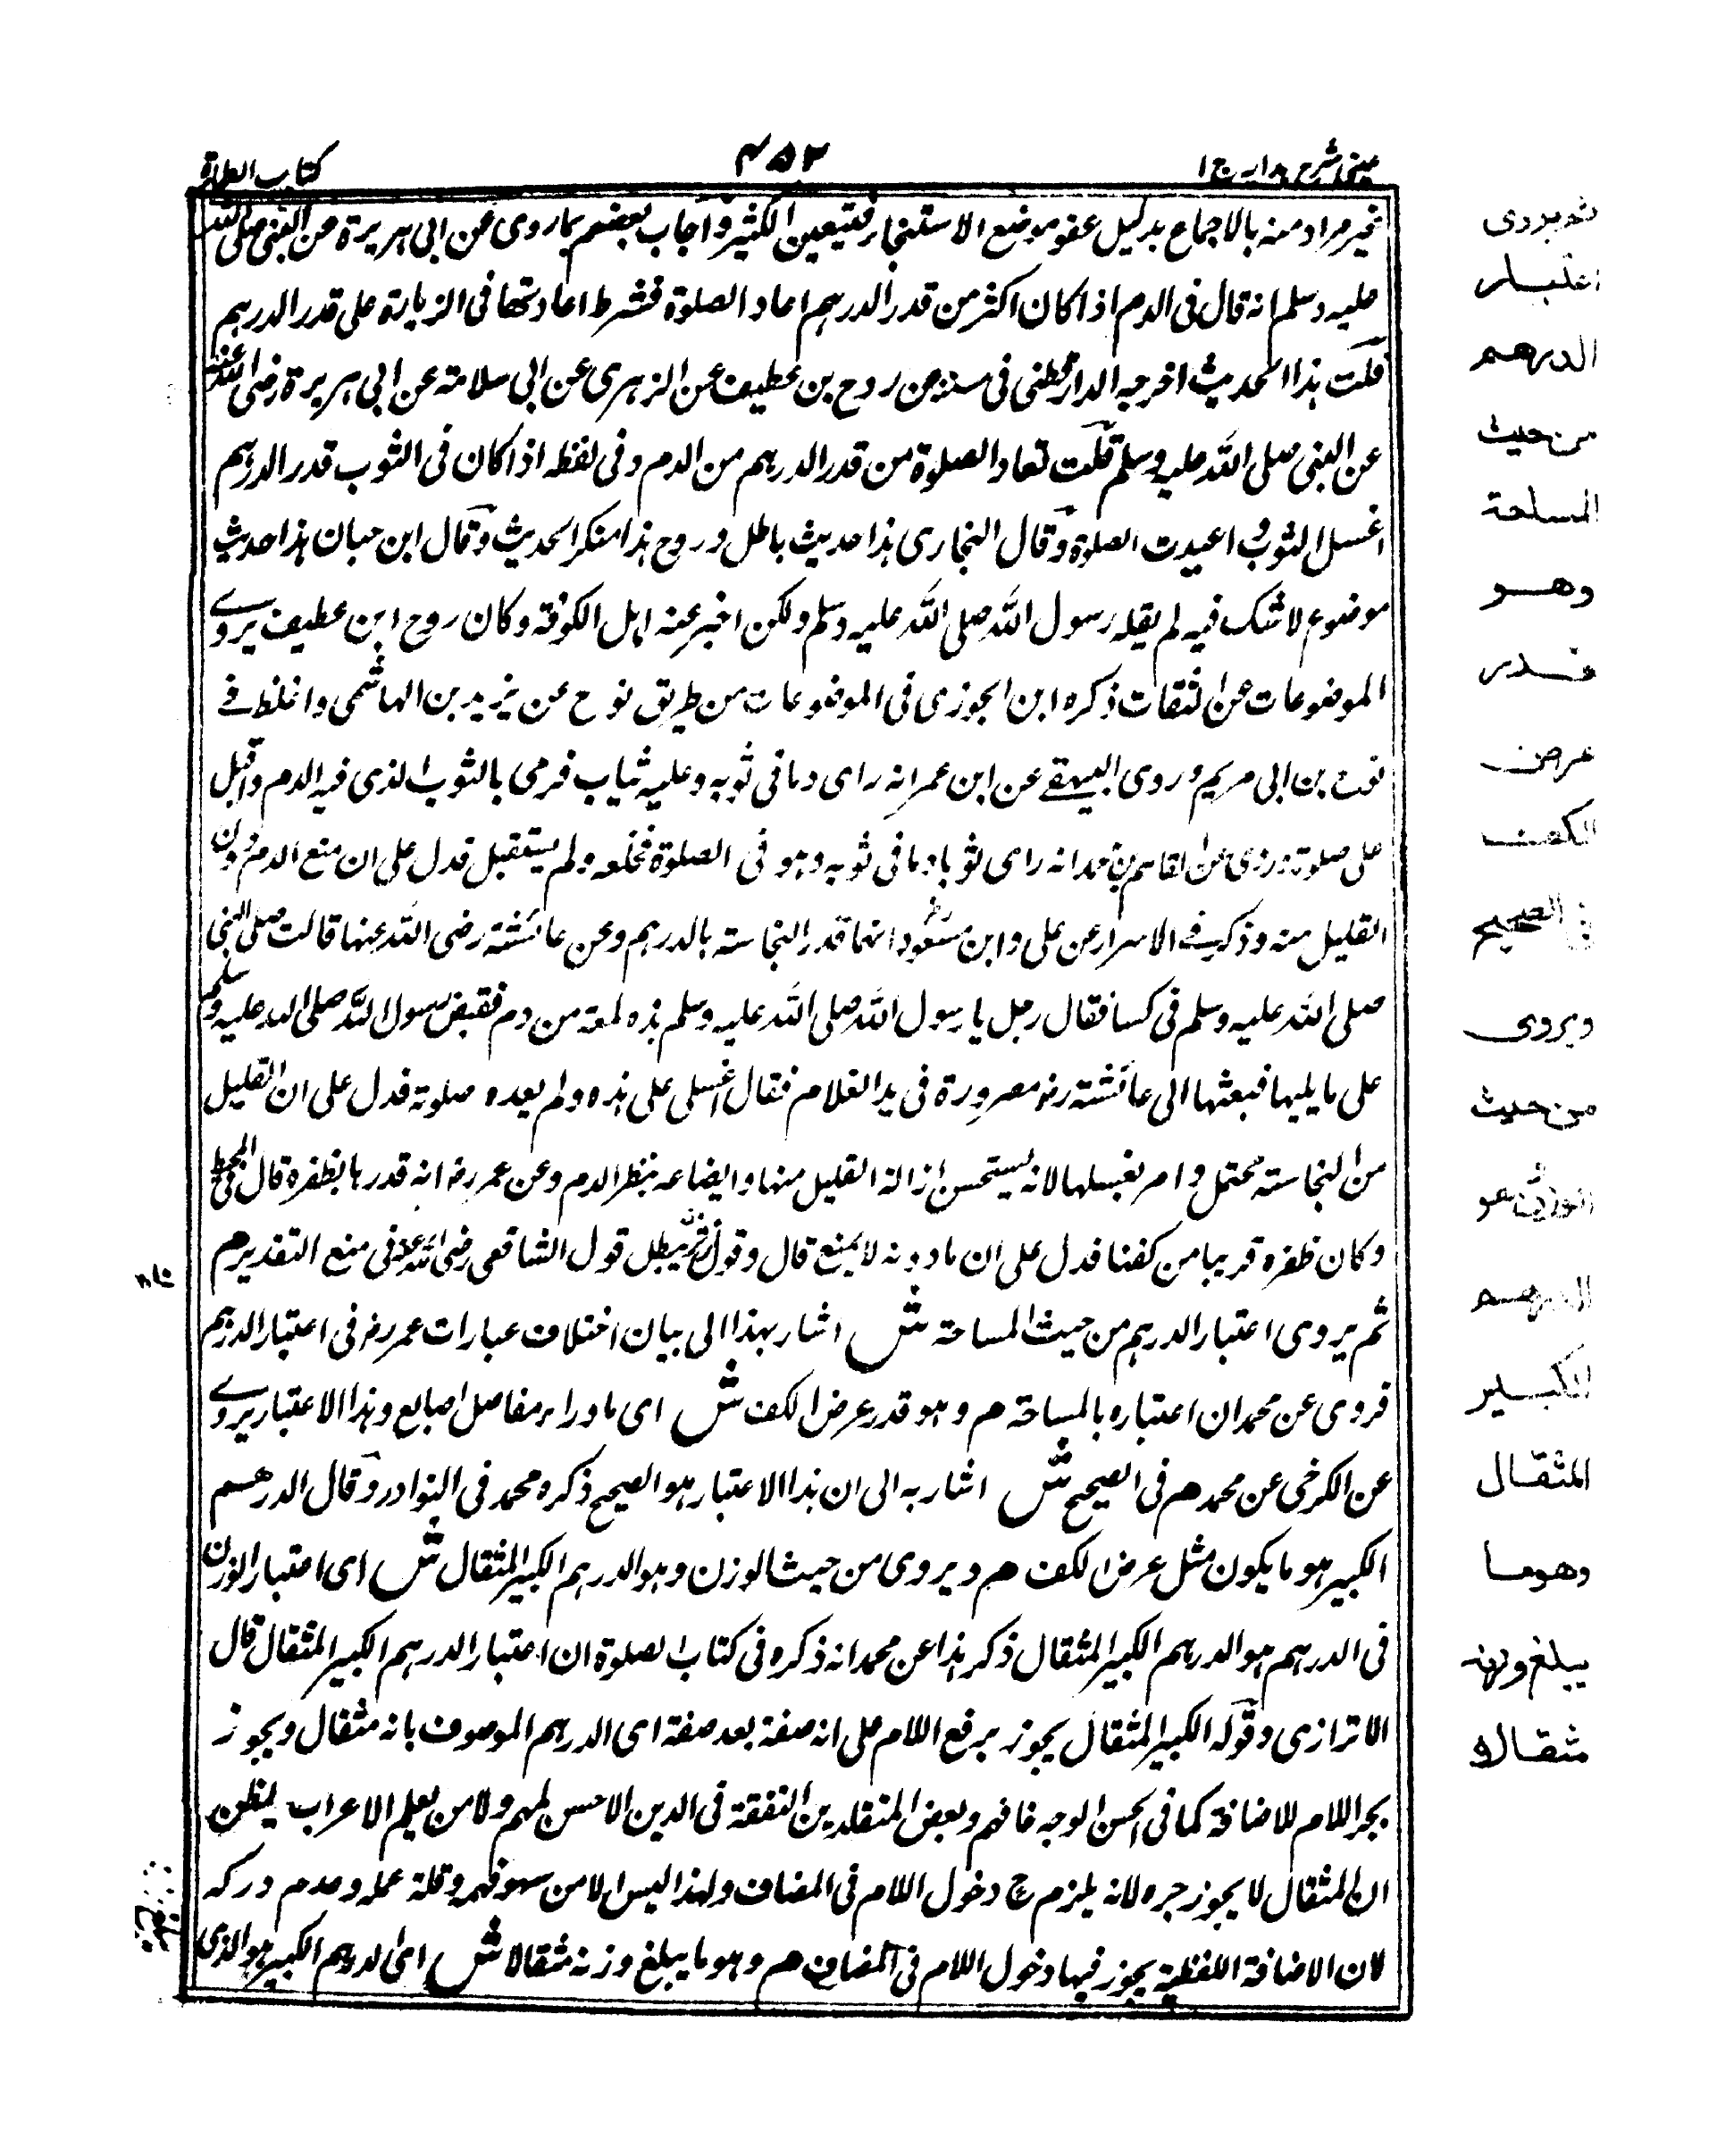 عینی شرح ہدایہ ج ۱
۴۵۲
کتاب الطہارة
غیر مراد منہ بالاجماع بدلیل عفو موضع الاستنجاء فتیعین الکثیر وآجاب بعضہم بما روی عن ابی ہریرة عن النبی صلی اللہ
علیہ وسلم انہ قال فی الدم اذا کان اکثر من قدر الدرہم اعاد الصلوة فشرط اعادتہا فی الزیادة علی قدر الدرہم
قلت ہذا الحدیث اخرجہ الدارقطنی فی سننہ عن روح بن غطیف عن الزہری عن ابی سلامة عن ابی ہریرة رضی اللہ عنہ
عن النبی صلی اللہ علیہ وسلم قلت تعاد الصلوة من قدر الدرہم من الدم وفی لفظہ اذا کان فی الثوب قدر الدرہم
اغسل الثوب و اعیدت الصلوة وقال البخاری ہذا حدیث باطل و روح ہذا منکر الحدیث وقال ابن حبان ہذا حدیث
موضوع لا شک فیہ لم یقلہ رسول اللہ صلی اللہ علیہ وسلم ولکن اخبر عنہ اہل الکوفة وکان روح ابن غطیف یروے
الموضوعات عن الثقات ذکرہ ابن الجوزی فی الموضوعات من طریق نوح عن یزید بن الہاشمی واغلظ فے
نوح بن ابی مریم وروی البیہقے عن ابن عمر انہ رای دما فی ثوبہ وعلیہ ثیاب فرمی بالثوب الذی فیہ الدم واقبل
علی صلوتہ وروی عن القاسم بن محمد انہ رای ثوبا دما فی ثوبہ وہو فی الصلوة فخلعہ ولم یستقبل فدل علی ان منع الدم دون
القلیل منہ وذکر فے الاسرار عن علی وابن مسعود انہما قدر النجاستہ بالدرہم وعن عائشتہ رضی اللہ عنہا قالت صلی النبی
صلی اللہ علیہ وسلم فی کسا فقال رجل یا رسول اللہ صلی اللہ علیہ وسلم ہذہ لمعتہ من دم فقبض رسول اللہ صلی اللہ علیہ وسلم
علی ما یلیہا فبعثہا الی عائشتہ رضہ مصرورة فی ید الغلام فقال اغسلی علی ہذہ ولم یعدہ صلوتہ فدل علی ان القلیل
من النجاستہ محتمل و امر بغسلہا لانہ یستحسن ازالة القلیل منہا وایضا عہ بنظر الدم وعن عمر رضہ انہ قدرہا بظفرہ قال المحیط
وکان ظفرہ قریبا من کفنا فدل علی ان ما دونہ لا یمنع قال وقول یبطل قول الشافعی رضی اللہ عنہ فی منع التقدیر م
ثم یروی اعتبار الدرہم من حیث المساحة ش اشار بہذا الی بیان اختلاف عبارات عمر رضہ فی اعتبار الدرہم
فروی عن محمد ان اعتبارہ بالمساحة م وہو قدر عرض الکف ش ای ما وراء مفاصل اصابع وہذا الاعتبار یروے
عن الکرخی عن محمد م فی الصحیح ش اشار بہ الی ان ہذا الاعتبار ہو الصحیح ذکرہ محمد فی النوادر وقال الدرہم
الکبیر ہو ما یکون مثل عرض الکف م ویروی من حیث الوزن وہو الدرہم الکبیر المثقال ش ای اعتبار الوزن
فی الدرہم ہو الدرہم الکبیر المثقال ذکر ہذا عن محمد انہ ذکرہ فی کتاب الصلوة ان اعتبار الدرہم الکبیر المثقال قال
الاترازی وقولہ الکبیر المثقال یجوز برفع اللام علی انہ صفة بعد صفة ای الدرہم الموصوف بانہ مثقال ویجوز
بجر اللام للاضافة کما فی الحسن الوجہ فافہم وبعض المتقلدین التفقة فی الدین الاحسن لہم ولا من یعلم الاعراب لیظن
ان المثقال لا یجوز جرہ لانہ یلزم ح دخول اللام فی المضاف ولہذا لیس الا من سہو فہم وقلة عملہ وعدم درکہ
لان الاضافة اللفظیة یجوز فیہا دخول اللام فی المضاف م وہو ما یبلغ وزنہ مثقالا ش ای الدرہم الکبیر ہو الذی
ثم یروی
اعتبار
الدرهم
من حیث
المساحة
وهو
قدر
عرض
الکف
فی الصحیح
ویروی
من حیث
الوزن وهو
الدرهم
الکبیر
المثقال
وهو ما
یبلغ وزنه
مثقالا